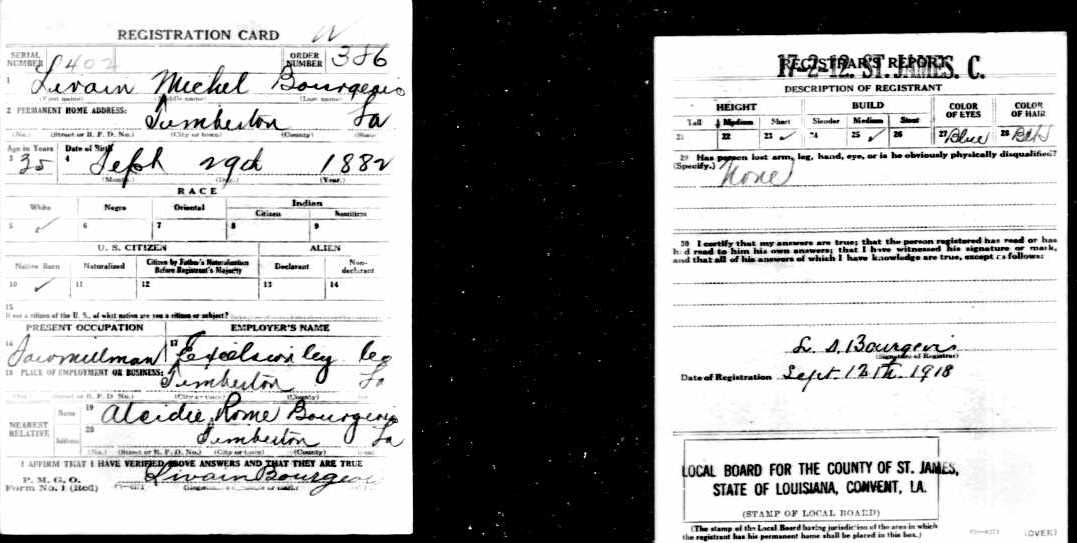 REGISTRATION CARD
SERIAL NUMBER 402 ORDER NUMBER 386
1 Livain Michel Bourgeois
(First name) (Middle name) (Last name)
2 PERMANENT HOME ADDRESS:
Timberton La
(No.) (Street or R. F. D. No.) (City or town) (County) (State)
Age in Years Date of Birth
3 35 4 Sept 29th 1882
(Month.) (Day.) (Year.)
RACE
White Negro Oriental Indian
Citizen Noncitizen
5 ✓ 6 7 8 9
U. S. CITIZEN ALIEN
Native Born Naturalized Citizen by Father's Naturalization Before Registrant's Majority Declarant Non-declarant
10 ✓ 11 12 13 14
15
If not a citizen of the U. S., of what nation are you a citizen or subject?
PRESENT OCCUPATION EMPLOYER'S NAME
16 Sawmillman 17 Excelsior Cy Co
18 PLACE OF EMPLOYMENT OR BUSINESS:
Timberton La
(No.) (Street or R. F. D. No.) (City or town) (County) (State)
NEAREST RELATIVE Name 19 Alcidie Rome Bourgeois
Address 20 Timberton La
(No.) (Street or R. F. D. No.) (City or town) (County) (State)
I AFFIRM THAT I HAVE VERIFIED ABOVE ANSWERS AND THAT THEY ARE TRUE
P. M. G. O.
Form No. 1 (Red) Livain Bourgeois
(Signature or mark)
REGISTRAR'S REPORT
17-2-12. ST. JAMES. C.
DESCRIPTION OF REGISTRANT
HEIGHT BUILD COLOR OF EYES COLOR OF HAIR
Tall Medium Short Slender Medium Stout
21 22 23 ✓ 24 25 ✓ 26 27 Blue 28
29 Has person lost arm, leg, hand, eye, or is he obviously physically disqualified?
(Specify.) None
30 I certify that my answers are true; that the person registered has read or has
had read to him his own answers; that I have witnessed his signature or mark,
and that all of his answers of which I have knowledge are true, except as follows:
L. S. Bourgeois
(Signature of Registrar)
Date of Registration Sept. 12th. 1918
LOCAL BOARD FOR THE COUNTY OF ST. JAMES,
STATE OF LOUISIANA, CONVENT, LA.
(STAMP OF LOCAL BOARD)
(The stamp of the Local Board having jurisdiction of the area in which
the registrant has his permanent home shall be placed in this box.)
(OVER)